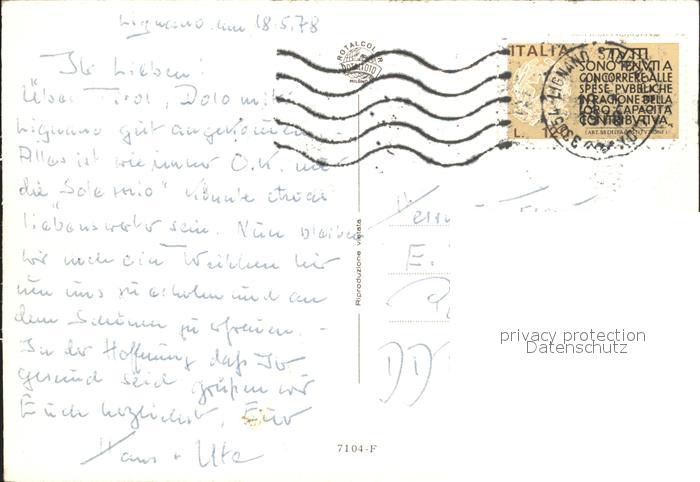 Lignano, am 18.5.78
Ihr Lieben!
Über Tirol, Dolomiten
Lignano gut angekommen.
Alles ist wie immer O.K. nur
die "Sole mio" könnte etwas
liebenswerter sein. Nun bleiben
wir noch ein Weilchen hier
um uns zu erholen und an
dem Schönen zu erfreuen. -
In der Hoffnung daß Ihr
gesund seid grüßen wir
Euch herzlichst, Eure
Hans + Ute
ROTALCOLOR
ROTALFOTO
MILANO
Riproduzione vietata
7104-F
ITALIA
TUTTI
SONO TENUTI A
CONCORRERE ALLE
SPESE PUBBLICHE
IN RAGIONE DELLA
LORO CAPACITÀ
CONTRIBUTIVA
L.
LIGNANO
E.
DD
privacy protection
Datenschutz